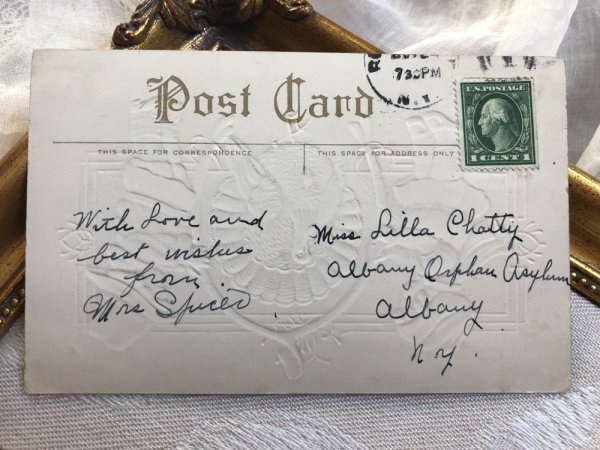 Post Card
THIS SPACE FOR CORRESPONDENCE
THIS SPACE FOR ADDRESS ONLY
730PM
N.Y.
U.S. POSTAGE
1 CENT 1
With Love and
best wishes
from
Mrs Spicer.
Miss Lilla Chatty
Albany Orphan Asylum
Albany
N.Y.